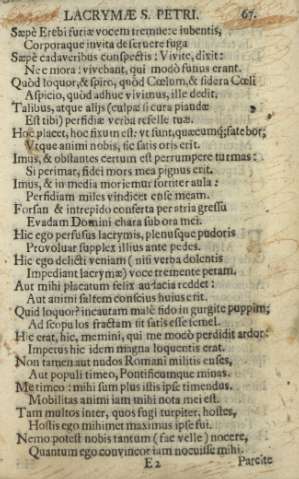 LACRYMÆ S. PETRI. 67.
Sæpè Erebi furiæ vocem tremuere iubentis,
Corporaque invita deseruere fuga
Sæpè cadaveribus conspectis: Vivite, dixit:
Nec mora: vivebant, qui modò funus erant.
Quòd loquor, & spiro, quòd Cœlum, & sidera Cœli
Aspicio, quòd adhuc vivimus, ille dedit.
Talibus, atque alijs (culpæ si cura piandæ
Est tibi) perfidiæ verba refelle tuæ.
Hoc placet, hoc fixum est: vt sunt, quæcumq; fatebor;
Vtque animi nobis, sic satis oris erit.
Imus, & obstantes certum est perrumpere turmas:
Si perimar, fidei mors mea pignus erit.
Imus, & in media moriemur fortiter aula:
Perfidiam miles vindicet ense meam.
Forsan & intrepido conserta per atria gressu
Evadam Domini chara sub ora mei.
Hic ego perfusus lacrymis, plenusque pudoris
Provoluar supplex illius ante pedes.
Hic ego delicti veniam (ni si verba dolentis
Impediant lacrymæ) voce tremente petam.
Aut mihi placatum felix audacia reddet:
Aut animi saltem conscius huius erit.
Quid loquor? incautam malè fido in gurgite puppim;
Ad scopulos fractam sit satis esse semel.
Hic erat, hic, memini, qui me mocò perdidit ardor:
Impetus hic idem magna loquentis erat.
Non tamen aut nudos Romani militis enses,
Aut populi timeo, Pontificumque minas.
Me timeo: mihi sum plus istis ipse timendus.
Mobilitas animi iam mihi nota mei est.
Tam multos inter, quos fugi turpiter, hostes,
Hostis ego mihimet maximus ipse fui.
Nemo potest nobis tantum (fac velle) nocere,
Quantum ego convincor iam nocuisse mihi.
E2 Parcite